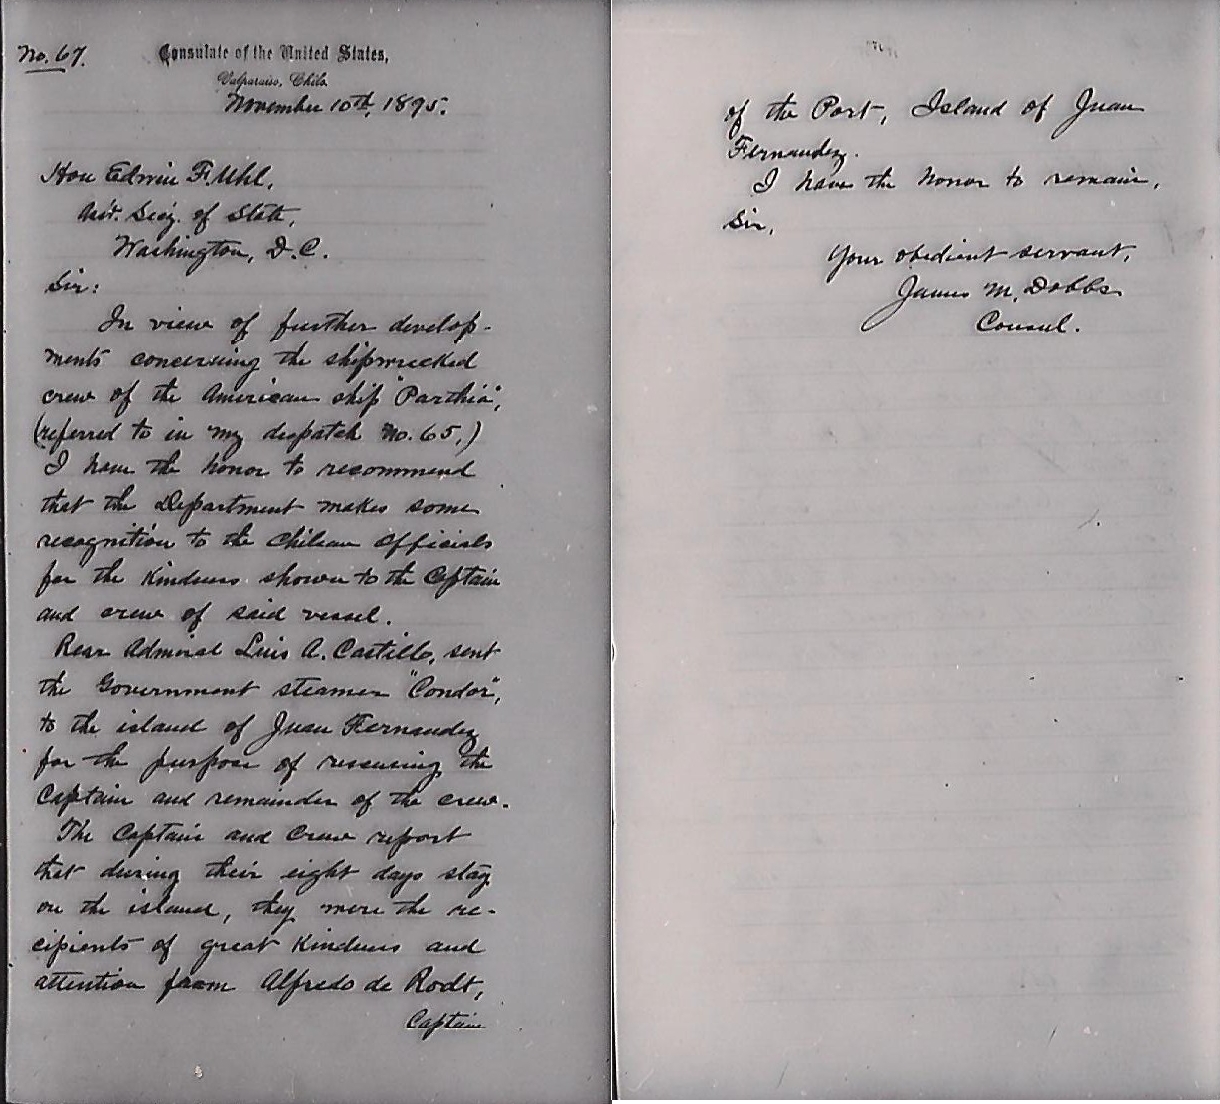 No. 67.
Consulate of the United States,
Valparaiso, Chile.
November 10th, 1895.
Hon Edwin F. Uhl,
Asst. Secy. of State,
Washington, D.C.
Sir:
In view of further develop-
ments concerning the shipwrecked
crew of the American ship "Parthia",
(referred to in my despatch No. 65,)
I have the honor to recommend
that the Department makes some
recognition to the Chilean Officials
for the kindness shown to the Captain
and crew of said vessel.
Rear Admiral Luis A. Castillo, sent
the Government steamer "Condor",
to the island of Juan Fernandez
for the purpose of rescuing the
Captain and remainder of the crew.
The Captain and Crew report
that during their eight days stay
on the island, they were the re-
cipients of great kindness and
attention from Alfredo de Rodt,
Captain
of the Port, Island of Juan
Fernandez.
I have the honor to remain,
Sir,
Your obedient servant,
James M. Dobbs
Consul.